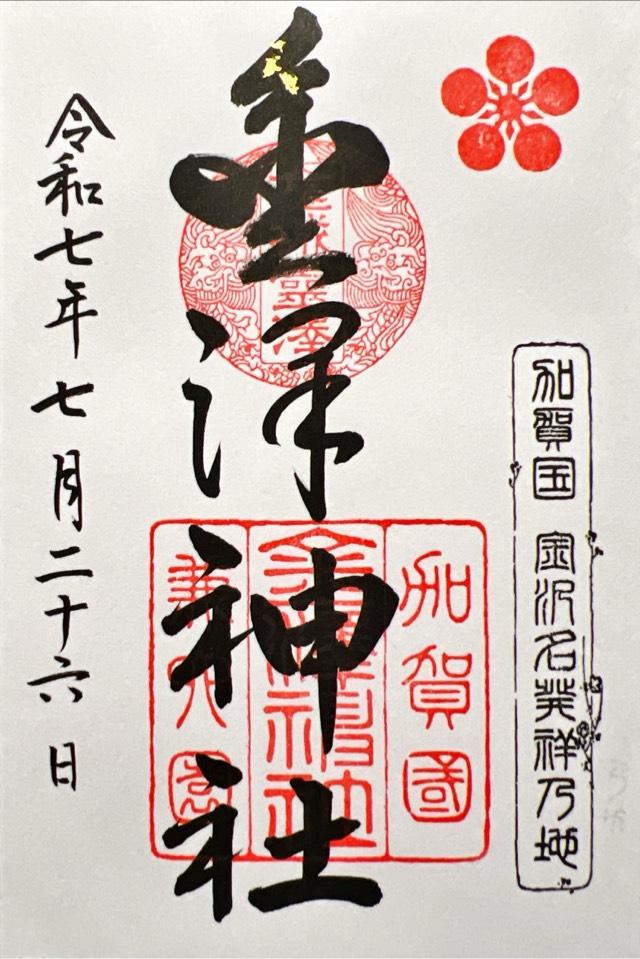 加賀国 金沢名発祥乃地
金澤神社
加賀國
金澤神社
兼六園
令和七年七月二十六日